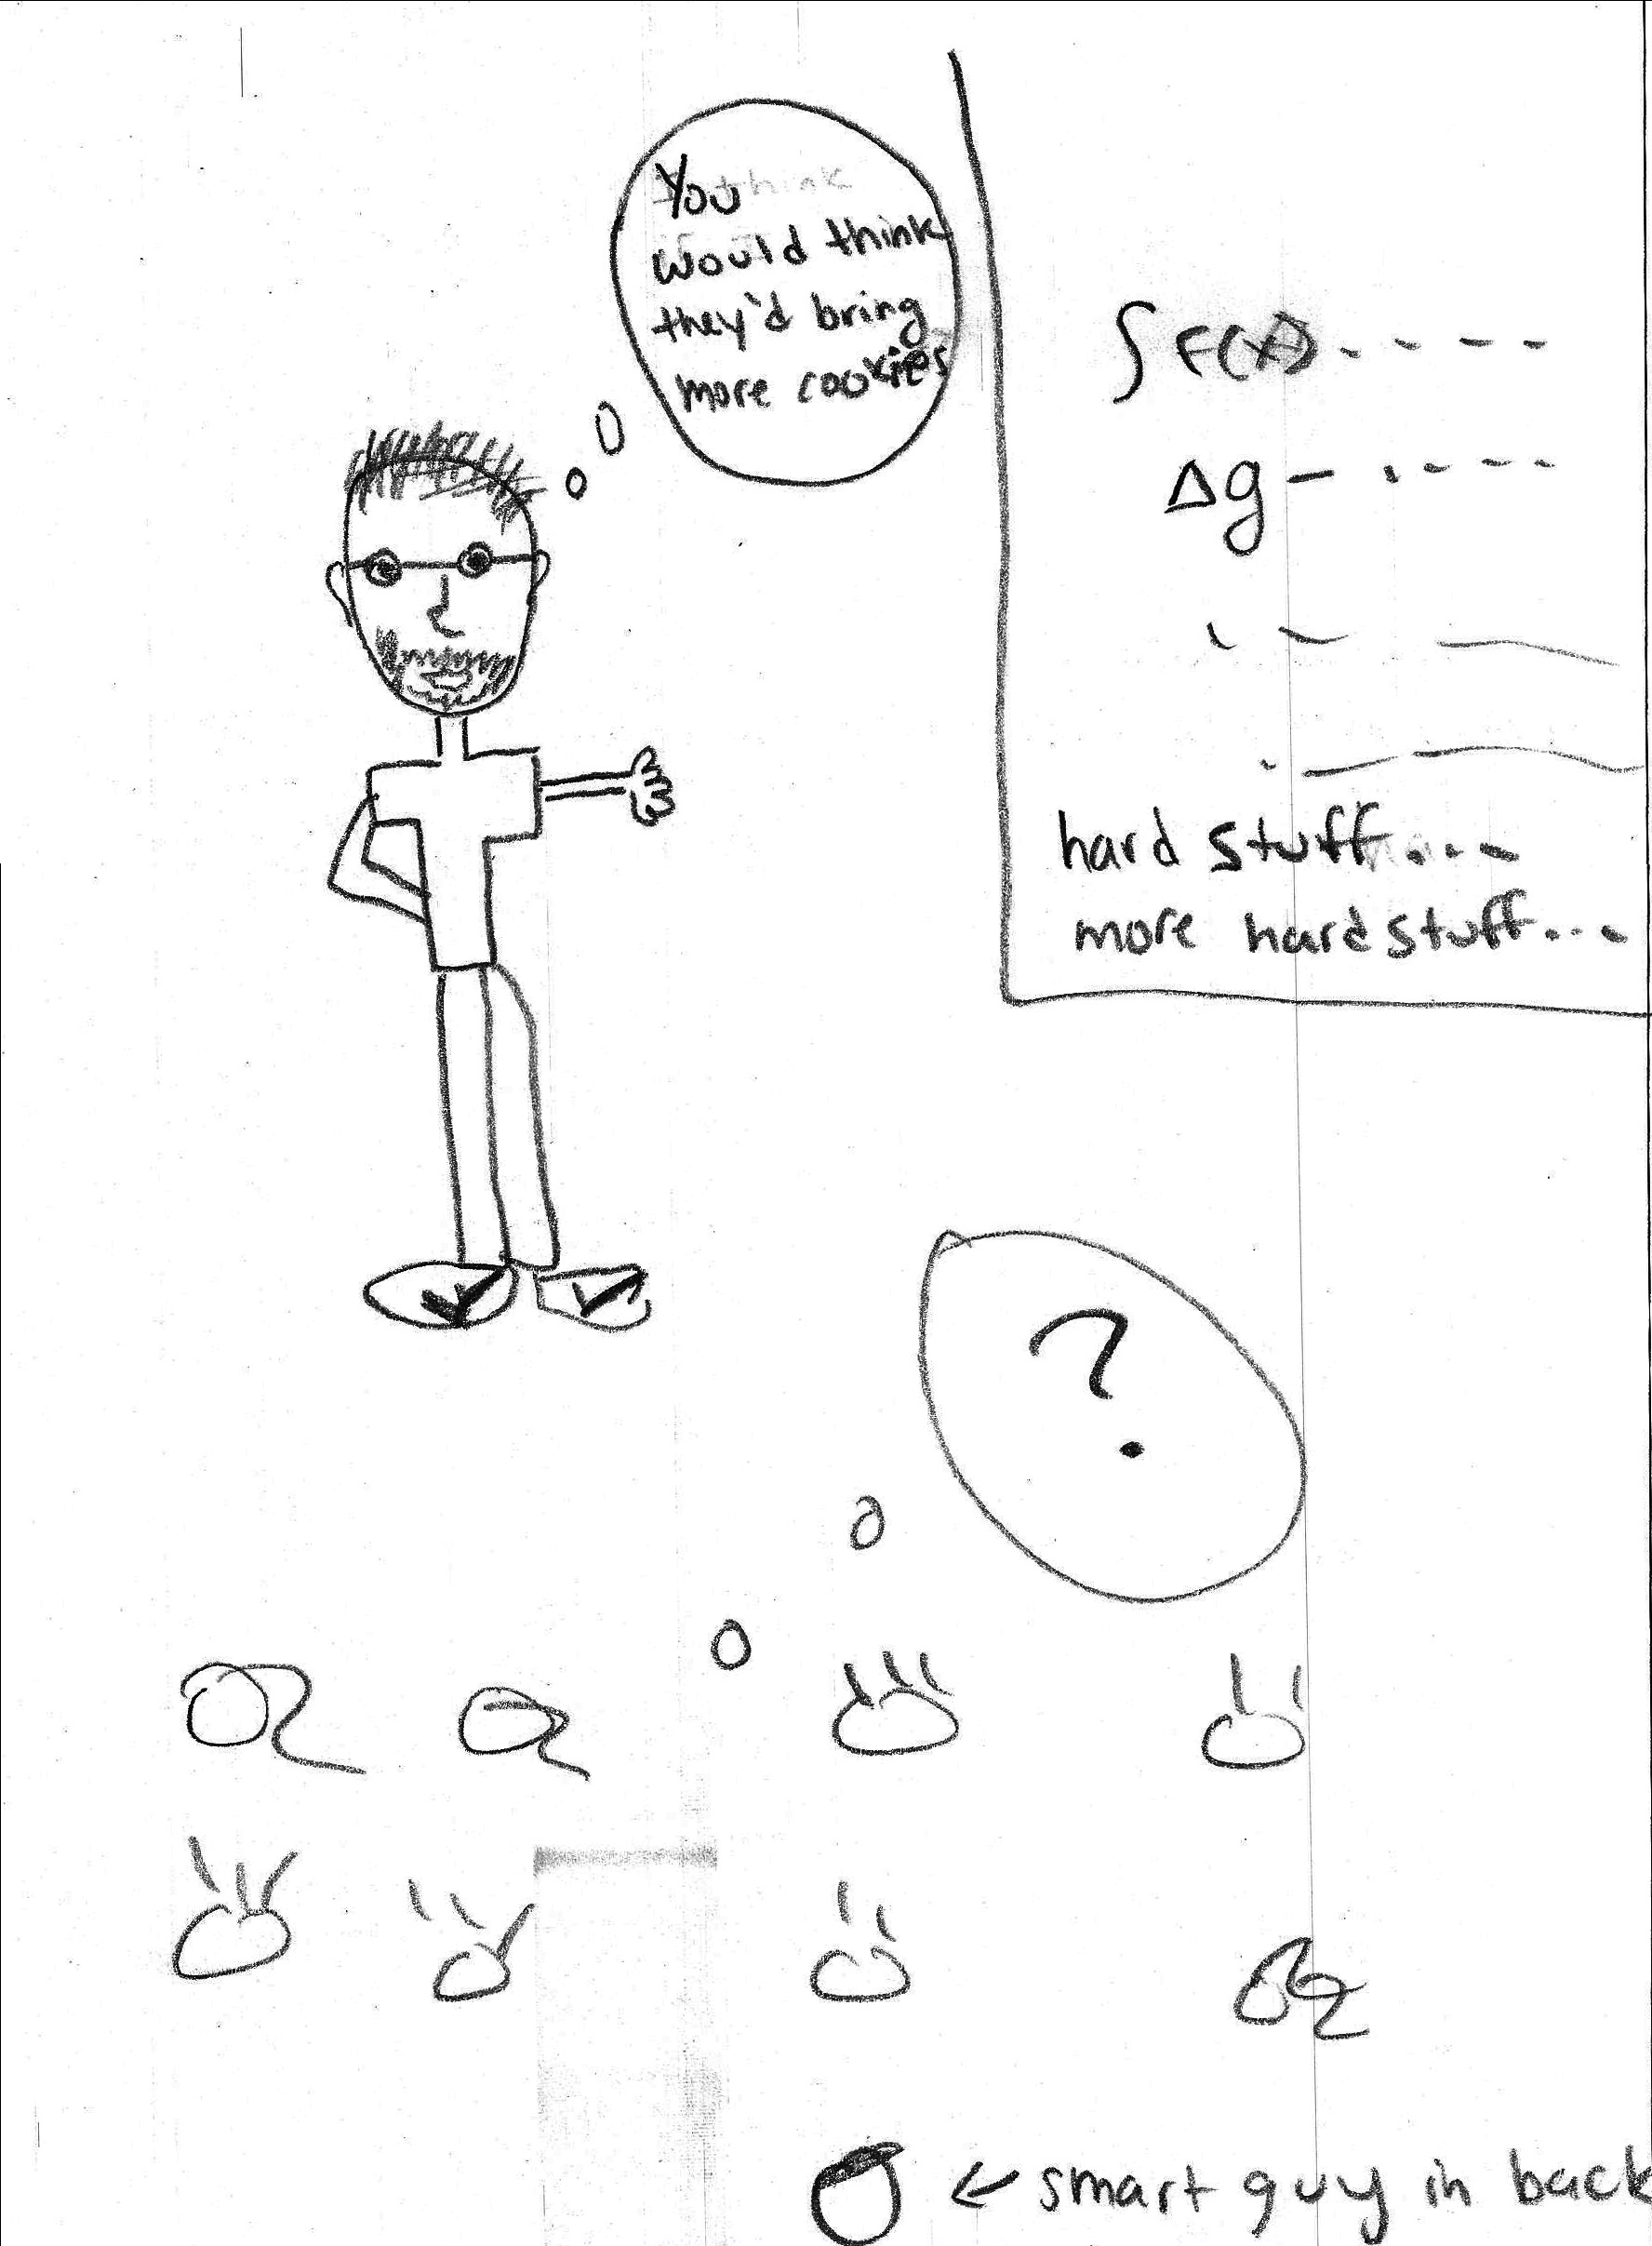 You
would think
they'd bring
more cookies
∫ F(x) - - - - -
Δg - . - - - -
hard stuff...
more hard stuff...
?
← smart guy in back